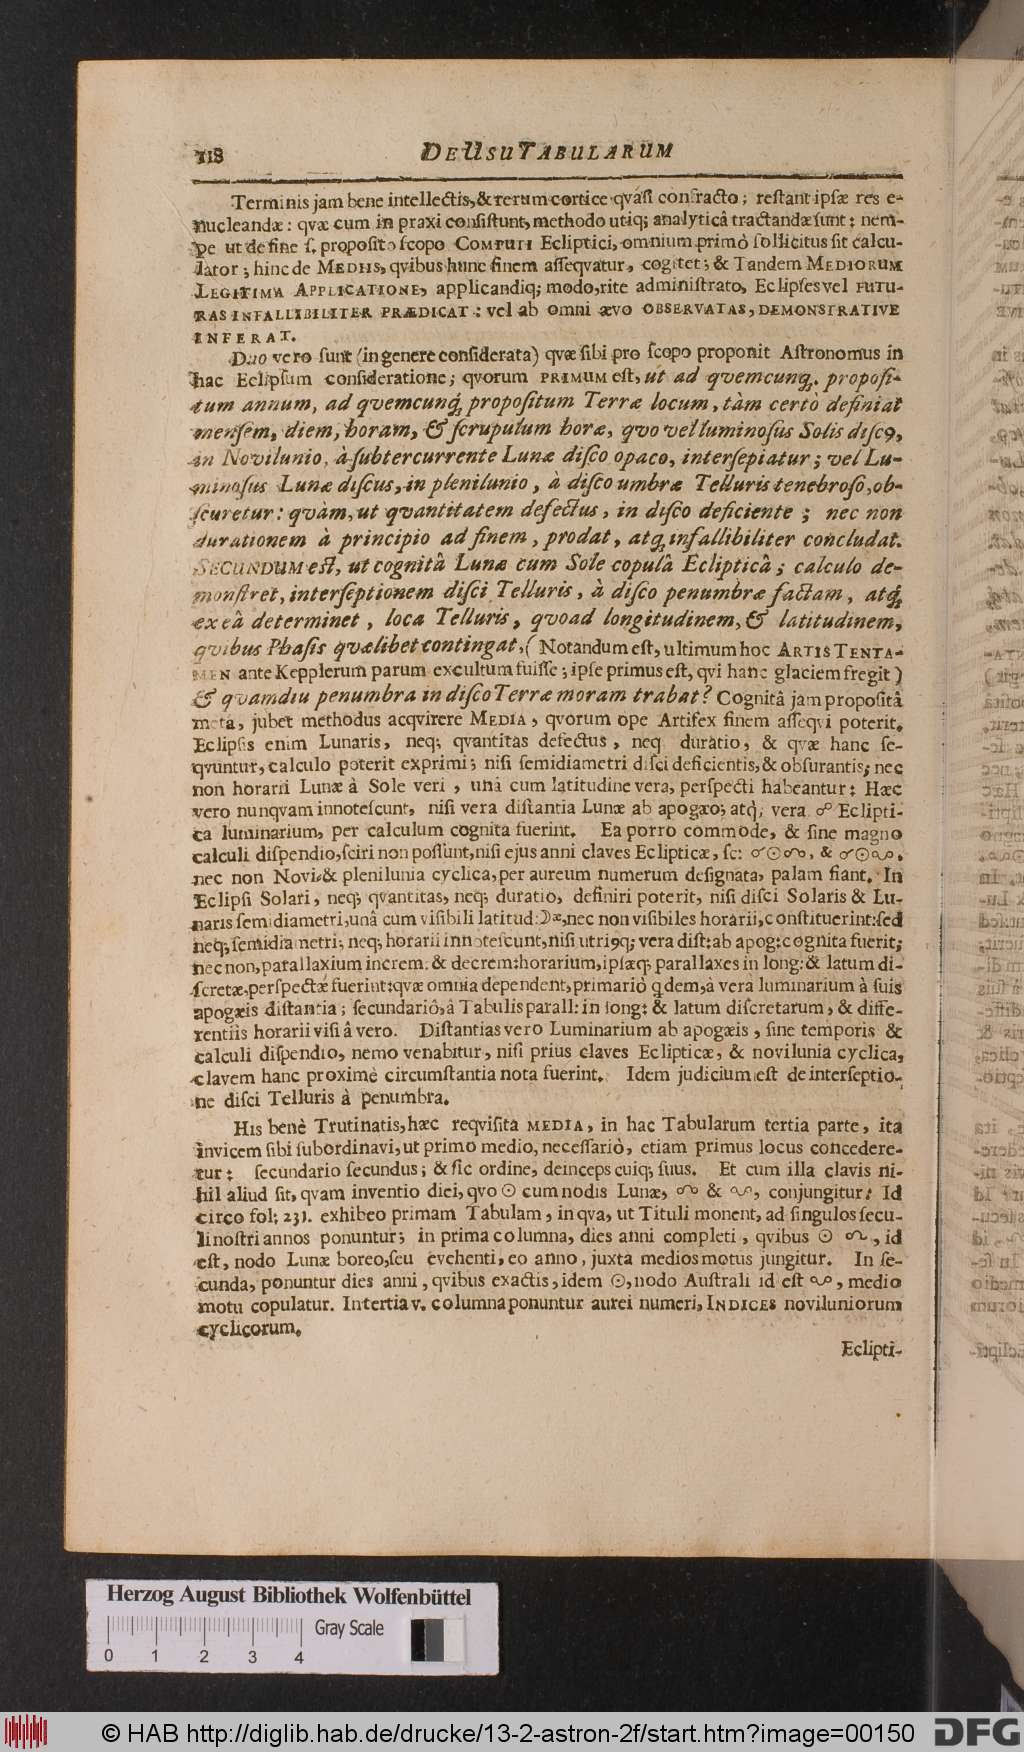 118 DE USU TABULARUM
Terminis jam bene intellectis, & rerum cortice qvasi confracto; restant ipsæ res e-
nucleandæ: qvæ cum in praxi consistunt, methodo utiq; analyticâ tractandæ sunt: nem-
pe ut de fine s. proposito scopo COMPUTI Ecliptici, omnium primò sollicitus sit calcu-
lator; hinc de MEDIIS, qvibus hunc finem asseqvatur, cogitet; & Tandem MEDIORUM
LEGITIMA APPLICATIONE, applicandiq; modo, rite administrato, Eclipses vel FUTU-
RAS INFALLIBILITER PRÆDICAT: vel ab omni ævo OBSERVATAS, DEMONSTRATIVE
INFERAT.
Duo vero sunt (in genere considerata) qvæ sibi pro scopo proponit Astronomus in
hac Eclipsium consideratione; qvorum PRIMUM est, ut ad qvemcunq; proposi-
tum annum, ad qvemcunq; propositum Terræ locum, tàm certò definiat
mensem, diem, horam, & scrupulum horæ, qvo vel luminosus Solis discꝰ,
in Novilunio, à subtercurrente Lunæ disco opaco, intersepiatur; vel Lu-
minosus Lunæ discus, in plenilunio, à disco umbræ Telluris tenebroso, ob-
scuretur: qvàm, ut qvantitatem defectus, in disco deficiente; nec non
durationem à principio ad finem, prodat, atq; infallibiliter concludat.
SECUNDUM est, ut cognitâ Lunæ cum Sole copulâ Eclipticâ; calculo de-
monstret, interseptionem disci Telluris, à disco penumbræ factam, atq;
ex eâ determinet, loca Telluris, qvoad longitudinem, & latitudinem,
qvibus Phasis qvælibet contingat, (Notandum est, ultimum hoc ARTIS TENTA-
MEN ante Kepplerum parum excultum fuisse; ipse primus est, qvi hanc glaciem fregit)
& qvamdiu penumbra in disco Terræ moram trahat? Cognitâ jam propositâ
metâ, jubet methodus acqvirere MEDIA, qvorum ope Artifex finem asseqvi poterit.
Eclipsis enim Lunaris, neq; qvantitas defectus, neq duratio, & qvæ hanc se-
qvuntur, calculo poterit exprimi; nisi semidiametri disci deficientis, & obsurantis; nec
non horarii Lunæ à Sole veri, unâ cum latitudine vera, perspecti habeantur: Hæc
vero nunqvam innotescunt, nisi vera distantia Lunæ ab apogæo; atq; vera ☍ Eclipti-
ca luminarium, per calculum cognita fuerint. Ea porro commode, & sine magno
calculi dispendio, sciri non possunt, nisi ejus anni claves Eclipticæ, sc: ☌☉☊, & ☌☉☋,
nec non Novi- & plenilunia cyclica, per aureum numerum designata, palam fiant. In
Eclipsi Solari, neq; qvantitas, neq; duratio, definiri poterit, nisi disci Solaris & Lu-
naris semidiametri, unâ cum visibili latitud: ☽æ, nec non visibiles horarii, constituerint: sed
neq; semidiametri; neq; horarii innotescunt, nisi utriꝰq; vera dist: ab apog: cognita fuerit;
nec non, parallaxium increm: & decrem: horarium, ipsæq; parallaxes in long: & latum di-
scretæ, perspectæ fuerint: qvæ omnia dependent, primariò qdem, à vera luminarium à suis
apogæis distantia; secundariô, à Tabulis parall: in long: & latum discretarum, & diffe-
rentiis horarii visi â vero. Distantias vero Luminarium ab apogæis, sine temporis &
calculi dispendio, nemo venabitur, nisi prius claves Eclipticæ, & novilunia cyclica,
clavem hanc proximè circumstantia nota fuerint. Idem judicium est de interseptio-
ne disci Telluris à penumbra.
HIS benè Trutinatis, hæc reqvisita MEDIA, in hac Tabularum tertia parte, ita
invicem sibi subordinavi, ut primo medio, necessariò, etiam primus locus concedere-
tur: secundario secundus; & sic ordine, deinceps cuiq; suus. Et cum illa clavis ni-
hil aliud sit, qvam inventio diei, qvo ☉ cum nodis Lunæ, ☊ & ☋, conjungitur: Id
circo fol: 231. exhibeo primam Tabulam, in qva, ut Tituli monent, ad singulos secu-
li nostri annos ponuntur; in prima columna, dies anni completi, qvibus ☉ ☊, id
est, nodo Lunæ boreo, seu evehenti, eo anno, juxta medios motus jungitur. In se-
cunda, ponuntur dies anni, qvibus exactis, idem ☉, nodo Australi id est ☋, medio
motu copulatur. In tertia v. columna ponuntur aurei numeri, INDICES noviluniorum
cyclicorum.
Eclipti-
Herzog August Bibliothek Wolfenbüttel
Gray Scale
0 1 2 3 4
© HAB http://diglib.hab.de/drucke/13-2-astron-2f/start.htm?image=00150 DFG